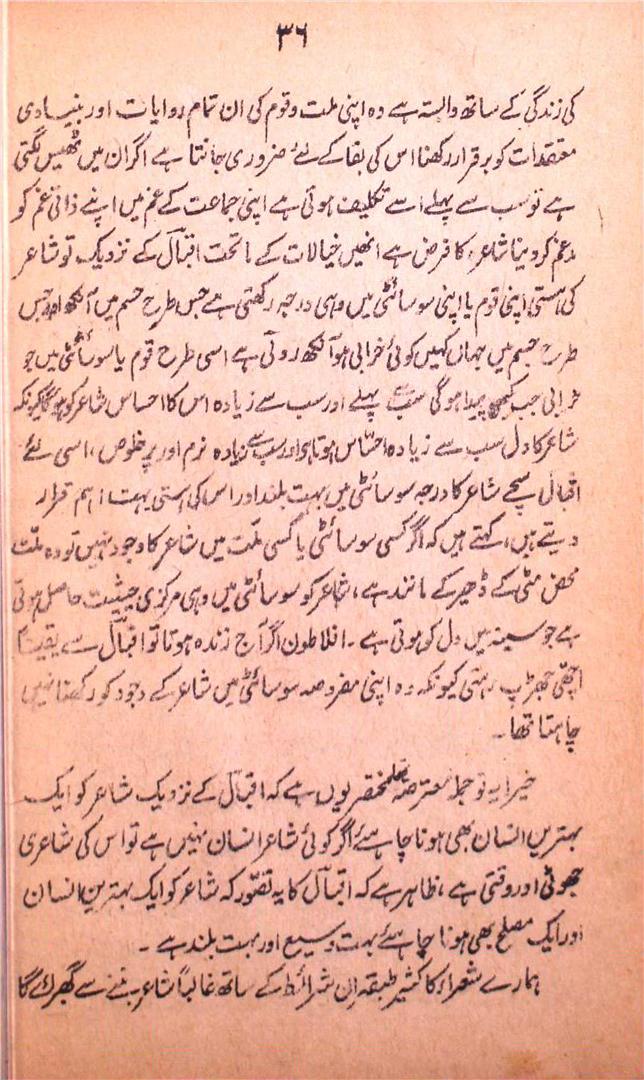 ۳۶
کی زندگی کے ساتھ وابستہ ہے وہ اپنی ملت وقوم کی ان تمام روایات اور بنیادی
معتقدات کو برقرار رکھنا اس کی بقا کے لئے ضروری جانتا ہے اگر ان میں ٹھیس لگتی
ہے تو سب سے پہلے اسے تکلیف ہوتی ہے اپنی جماعت کے غم میں اپنے ذاتی غم کو
مدغم کر دینا شاعر کا فرض ہے انھیں خیالات کے ماتحت اقبال کے نزدیک تو شاعر
کی ہستی اپنی قوم یا اپنی سوسائٹی میں وہی درجہ رکھتی ہے جس طرح جسم میں آنکھ اور جس
طرح جسم میں جہاں کہیں کوئی خرابی ہو آنکھ روتی ہے اسی طرح قوم یا سوسائٹی میں جو
خرابی جب کبھی پیدا ہوگی سب سے پہلے اور سب سے زیادہ اس کا احساس شاعر کو ہوگا کیونکہ
شاعر کا دل سب سے زیادہ احساس ہوتا ہے اور سب سے زیادہ نرم اور پرخلوص، اسی لئے
اقبال سچے شاعر کا درجہ سوسائٹی میں بہت بلند اور اس کی ہستی بہت اہم قرار
دیتے ہیں، کہتے ہیں کہ اگر کسی سوسائٹی یا کسی ملت میں شاعر کا وجود نہیں تو وہ ملت
محض مٹی کے ڈھیر کے مانند ہے، شاعر کو سوسائٹی میں وہی مرکزی حیثیت حاصل ہوتی
ہے جو سینہ میں دل کو ہوتی ہے۔ افلاطون اگر آج زندہ ہوتا تو اقبال سے یقیناً
اچھی جھڑپ رہتی کیونکہ وہ اپنی مفروضہ سوسائٹی میں شاعر کے وجود کو رکھنا نہیں
چاہتا تھا۔
خیر یہ تو جملہ معترضہ تھا مختصر یوں ہے کہ اقبال کے نزدیک شاعر کو ایک
بہترین انسان بھی ہونا چاہئے اگر کوئی شاعر انسان نہیں ہے تو اس کی شاعری
جھوٹی اور وقتی ہے، ظاہر ہے کہ اقبال کا یہ تصور کہ شاعر کو ایک بہترین انسان
اور ایک مصلح بھی ہونا چاہئے بہت وسیع اور بہت بلند ہے۔
ہمارے شعراء کا کثیر طبقہ ان شرائط کے ساتھ غالباً شاعر بننے سے گھبرائے گا